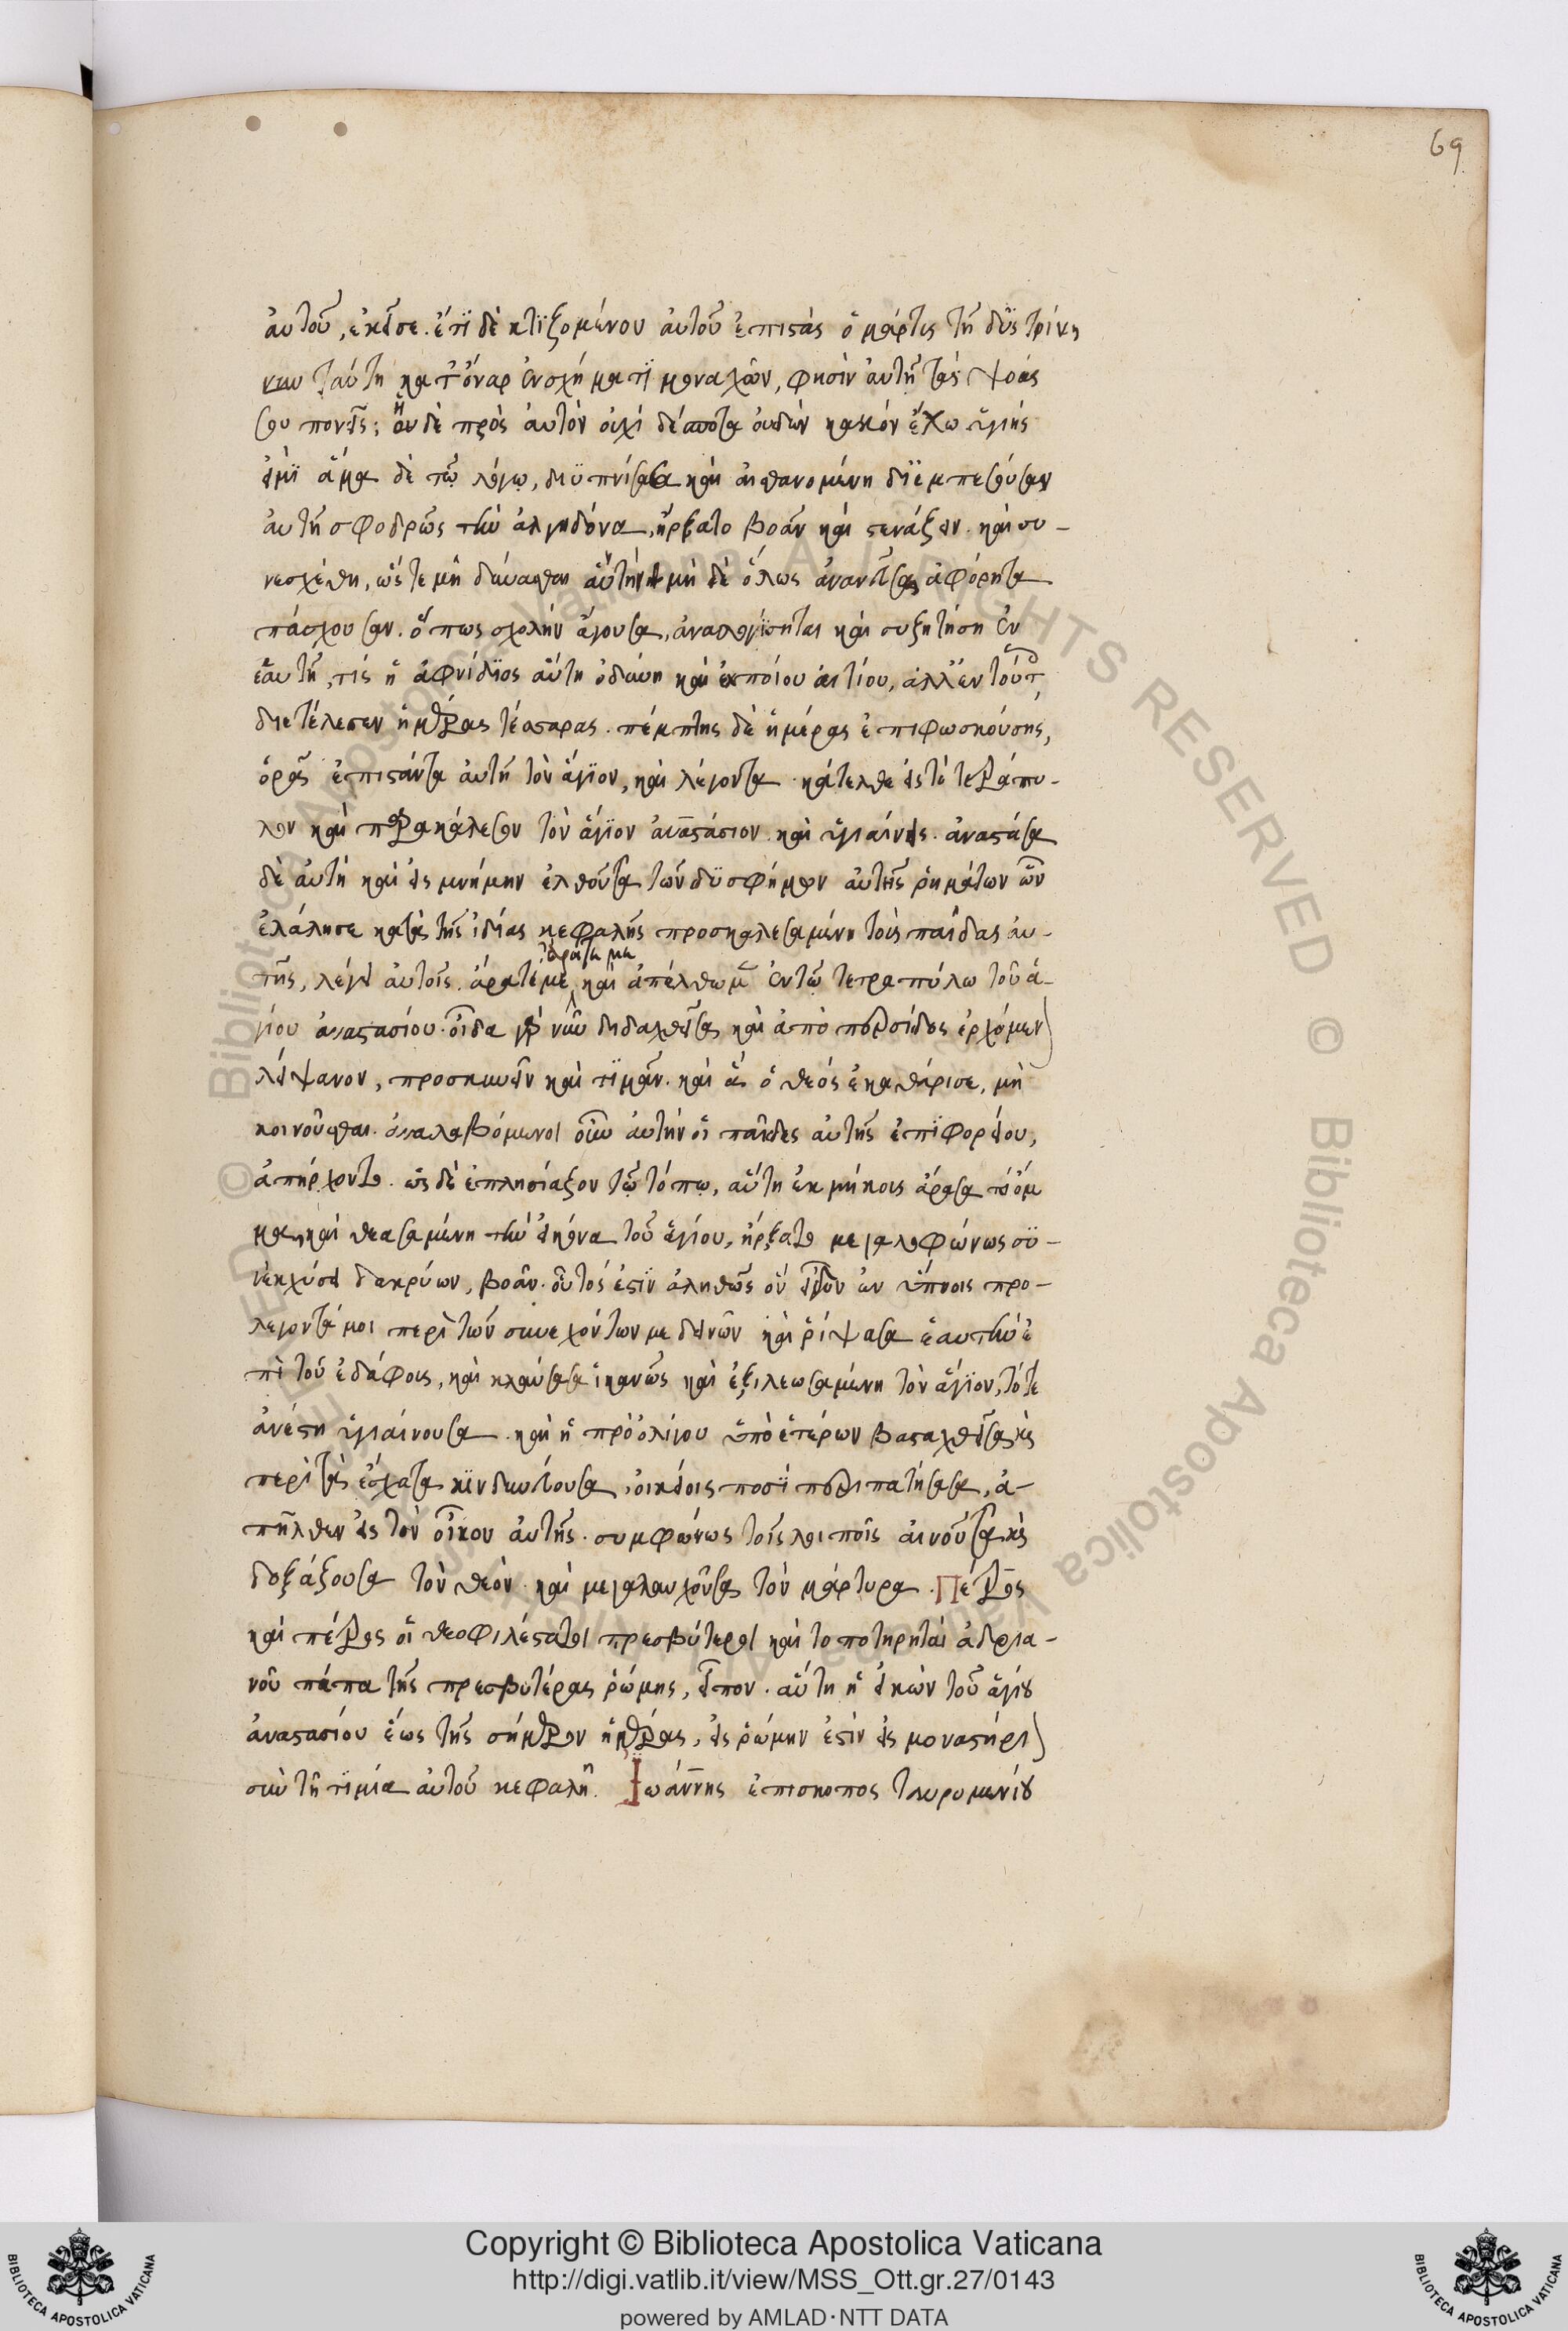 69
αὐτοῦ, ἐκεῖσε. ἔτϊ δὲ κτϊζομένου αὐτοῦ ἐπιστὰς ὁ μάρτυς τῇ
ταύτη κατ' ὄναρ ἐν σχήματϊ μοναχῶν, φησὶν αὐτῇ τὰς ψοάς
σου πονεῖς; ἡ δὲ πρὸς αὐτὸν οὐχὶ δέσποτα οὐδὲν κακὸν ἔχω ὑγιής
εἰμϊ ἅμα δὲ τῷ λόγῳ, διϋπνίσασα καὶ αἰσθανομένη διεμπεσοῦσαν
αὐτῇ σφοδρῶς τὴν ἀλγηδόνα, ἤρξατο βοᾶν καὶ στενάζειν. καὶ συ-
νεσχέθη, ὥστε μὴ δύνασθαι αὐτὴν μὴ δὲ ὅλως ἀνανεῦσαι ἀφόρητα
πάσχουσαν. ὅπως σχολὴν ἄγουσα, ἀναλογίσηται καὶ συζητήση ἐν
ἑαυτῇ, τίς ἡ ἀφνίδϊος αὕτη ὀδύνη καὶ ἐκ ποίου αἰτίου, ἀλλ' ἐν τούτω
διετέλεσεν ἡμέρας τέσσαρας. πέμπτης δὲ ἡμέρας ἐπιφωσκούσης,
ὁρᾷ ἐπιστάντα αὐτῇ τὸν ἅγϊον, καὶ λέγοντα. κάτελθε εἰς τὸ τετράπυ-
λον καὶ παρακάλεσον τὸν ἅγϊον ἀναστάσιον. καὶ ὑγιαίνεις. ἀναστᾶσα
δὲ αὐτὴ καὶ εἰς μνήμην ἐλθοῦσα τῶν δϋσφήμων αὐτῆς ῥημάτων ὧν
ἐλάλησε κατὰ τῆς ἰδίας κεφαλῆς προσκαλεσαμένη τοὺς παῖδας αὐ-
τῆς, λέγει αὐτοῖς. ἄρατέ με, καὶ ἀπέλθωμεν ἐν τῷ τετραπύλω τοῦ ἁ-
γίου ἀναστασίου. οἶδα γὰρ νῦν διδαχθεῖσα καὶ ἀπὸ περσίδος ἐρχόμενον
λείψανον, προσκυνεῖν καὶ τϊμᾶν. καὶ ἃ ὁ θεός ἐκαθάρισε, μὴ
κοινοῦσθαι. ἀναλαβόμενοι οὖν αὐτὴν οἱ παῖδες αὐτῆς ἐπϊ φορείου,
ἀπήρχοντο. ὡς δὲ ἐπλησίαζον τῷ τόπῳ, αὕτη ἐκ μήκους ἄρασα τὸ ὄμ
μα, καὶ θεασαμένη τὴν εἰκόνα τοῦ ἁγίου, ἤρξατο μεγαλοφώνως σϋ-
νεκχύσει δακρύων, βοᾶν. οὗτός ἐστϊν ἀληθῶς ὃν εἶδον ἐν ὕπνοις προ-
λεγοντά μοι περὶ τῶν συνεχόντων με δεινῶν καὶ ῥίψασα ἑαυτὴν ἐ
πὶ τοῦ ἐδάφους, καὶ κλαύσασα ἱκανῶς καὶ ἐξιλεωσαμένη τὸν ἅγϊον, τότε
ἀνέστη ὑγιαίνουσα. καὶ ἡ πρὸ ὀλίγου ὑπὸ ἑτέρων βασταχθεῖσα καὶ
περὶ τὰ ἔσχατα κϊνδυνεύουσα, οἰκείοις ποσϊ περιπατήσασα, ἀ-
πῆλθεν εἰς τὸν οἶκον αὐτῆς. συμφώνως τοῖς λοιποῖς αἰνοῦσα καὶ
δοξάζουσα τὸν θεὸν. καὶ μεγαλαυχοῦσα τὸν μάρτυρα. Πέτρος
καὶ πέτρος οἱ θεοφιλέστατοι πρεσβύτεροι καὶ τοποτηρηταὶ ἀδρια-
νοῦ πάπα τῆς πρεσβυτέρας ῥώμης, εἶπον. αὕτη ἡ εἰκὼν τοῦ ἁγίου
ἀναστασίου ἕως τῆς σήμερον ἡμέρας, εἰς ῥώμην ἐστὶν εἰς μοναστήριον
σὺν τῇ τϊμία αὐτοῦ κεφαλῇ. Ἰωάννης ἐπισκοπος ταυρομενίου
© Biblioteca Apostolica Vaticana. ALL RIGHTS RESERVED
Copyright © Biblioteca Apostolica Vaticana
http://digi.vatlib.it/view/MSS_Ott.gr.27/0143
powered by AMLAD·NTT DATA
BIBLIOTECA APOSTOLICA VATICANA
BIBLIOTECA APOSTOLICA VATICANA